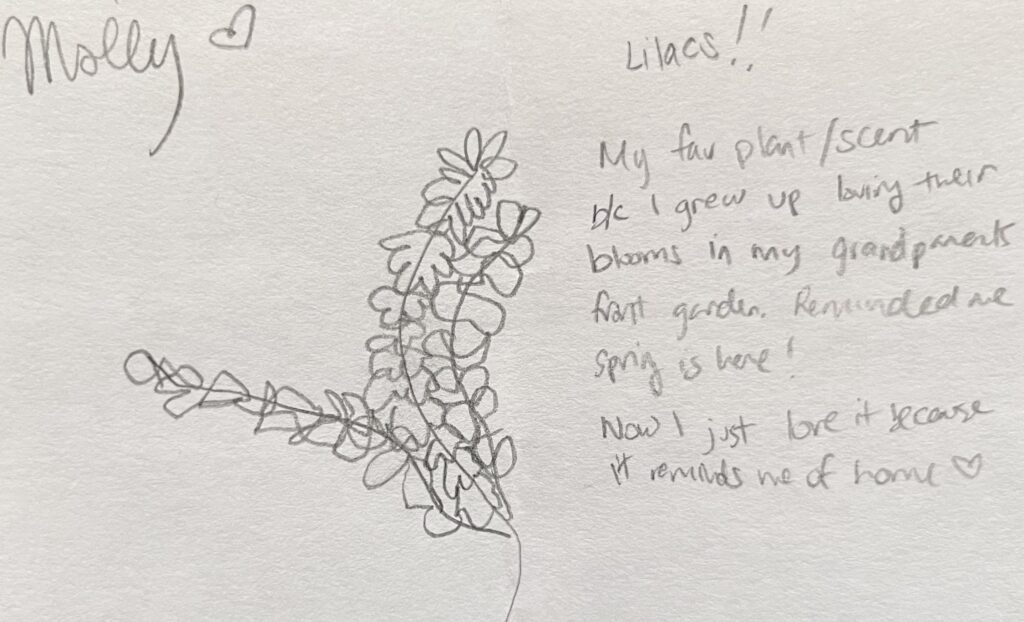 Molly ♡
Lilacs!!
My fav plant/scent
b/c I grew up loving their
blooms in my grandparents
front garden. Reminded me
spring is here!
Now I just love it because
it reminds me of home ♡